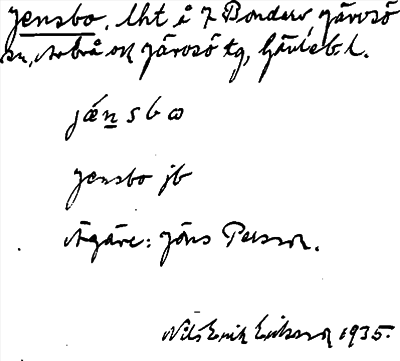 Jensbo, lht å 7 Bondarv, Järvsö
sn, Arbrå ok Järvsö tg, Gävleb. l.
jæ̂n s b ω
Jensbo jb
Ägare: Jöns Persson.
Nils Erik Eriksson 1935.